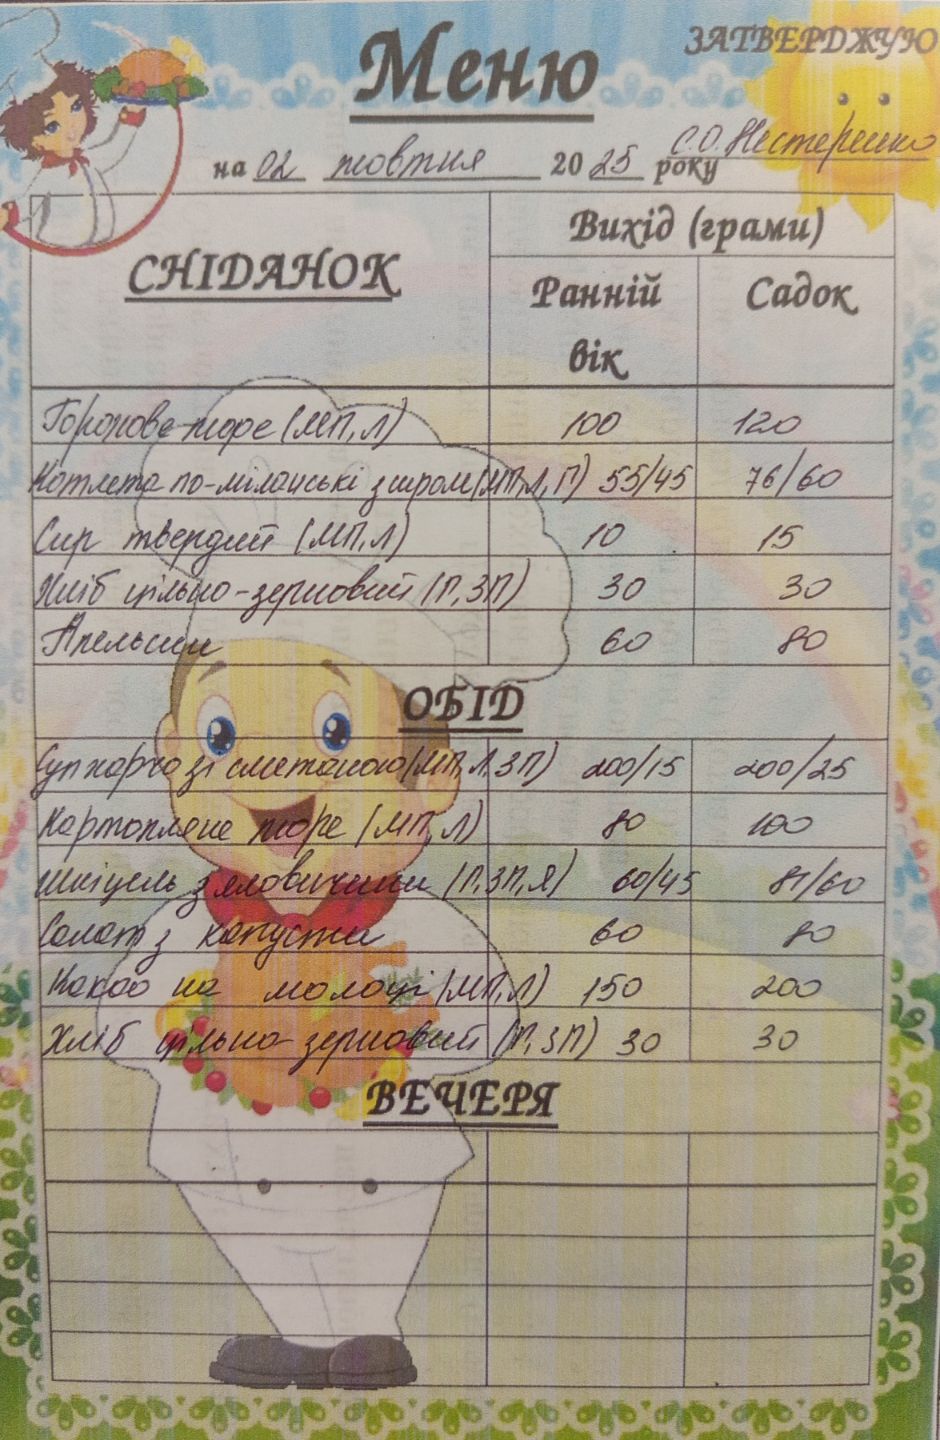 ЗАТВЕРДЖУЮ
Меню
С.О. Нестеренко
на 02 жовтня 2025 року
СНІДАНОК
Вихід (грами)
Ранній вік
Садок
Горохове пюре (МП, Л) 100 120
Котлета по-міланські з сиром (МП, Л, П) 55/45 76/60
Сир твердий (МП, Л) 10 15
Хліб цільно-зерновий (П, ЗП) 30 30
Апельсин 60 80
ОБІД
Суп харчо зі сметаною (МП, Л, ЗП) 200/15 200/25
Картопляне пюре (МП, Л) 80 100
Шніцель з яловичини (П, ЗП, Я) 60/45 81/60
Салат з капусти 60 80
Какао на молоці (МП, Л) 150 200
Хліб цільно-зерновий (П, ЗП) 30 30
ВЕЧЕРЯ